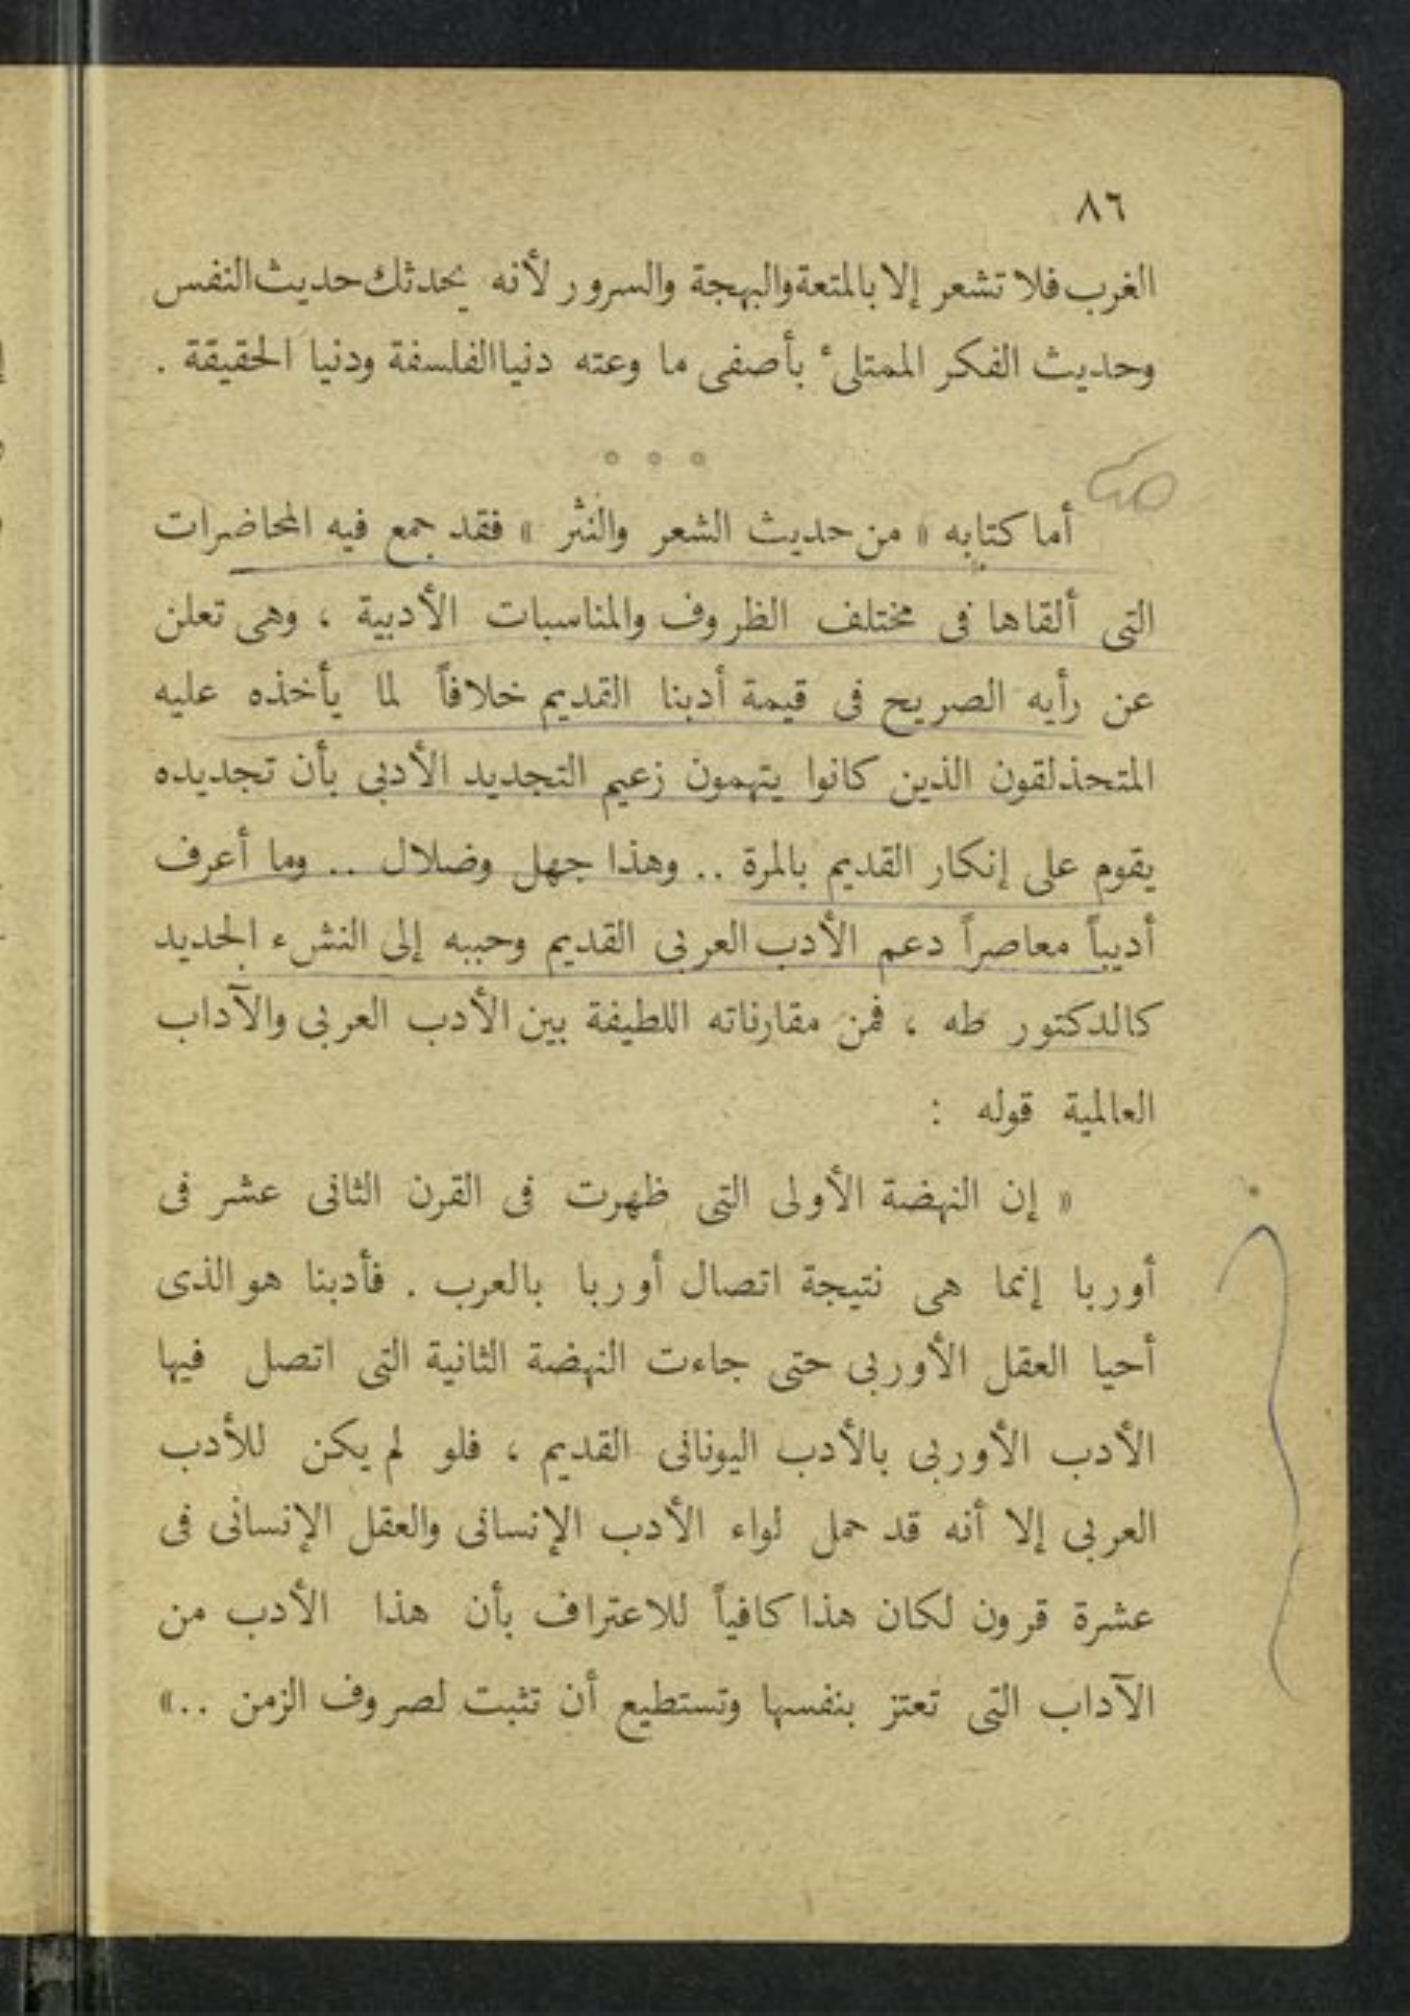 ٨٦
الغرب فلا تشعر إلا بالمتعة والبهجة والسرور لأنه يحدثك حديث النفس
وحديث الفكر الممتلىء بأصفى ما وعته دنيا الفلسفة ودنيا الحقيقة .
أما كتابه « من حديث الشعر والنثر » فقد جمع فيه المحاضرات
التى ألقاها فى مختلف الظروف والمناسبات الأدبية ، وهى تعلن
عن رأيه الصريح فى قيمة أدبنا القديم خلافاً لما يأخذه عليه
المتحذلقون الذين كانوا يتهمون زعيم التجديد الأدبى بأن تجديده
يقوم على إنكار القديم بالمرة .. وهذا جهل وضلال .. وما أعرف
أديباً معاصراً دعم الأدب العربى القديم وحببه إلى النشء الجديد
كالدكتور طه ، فمن مقارناته اللطيفة بين الأدب العربى والآداب
العالمية قوله :
« إن النهضة الأولى التى ظهرت فى القرن الثانى عشر فى
أوربا إنما هى نتيجة اتصال أوربا بالعرب . فأدبنا هو الذى
أحيا العقل الأوربى حتى جاءت النهضة الثانية التى اتصل فيها
الأدب الأوربى بالأدب اليونانى القديم ، فلو لم يكن للأدب
العربى إلا أنه قد حمل لواء الأدب الإنسانى والعقل الإنسانى فى
عشرة قرون لكان هذا كافياً للاعتراف بأن هذا الأدب من
الآداب التى تعتز بنفسها وتستطيع أن تثبت لصروف الزمن ..»